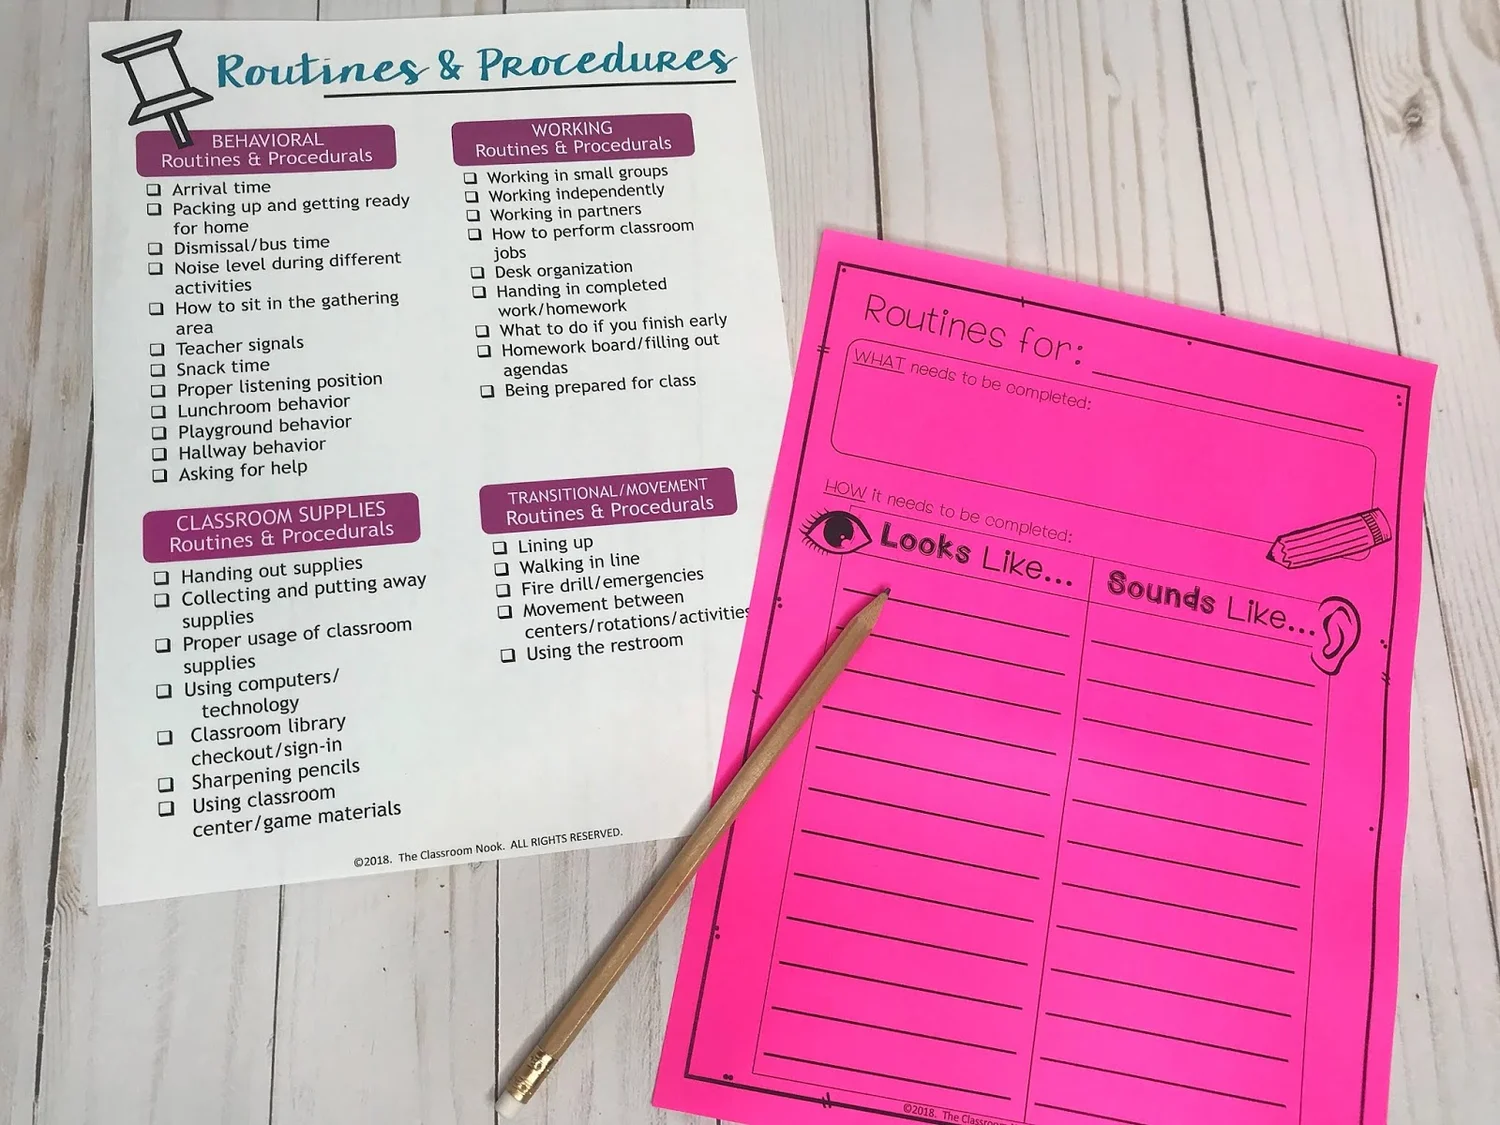 Routines & Procedures
BEHAVIORAL
Routines & Procedurals
Arrival time
Packing up and getting ready
for home
Dismissal/bus time
Noise level during different
activities
How to sit in the gathering
area
Teacher signals
Snack time
Proper listening position
Lunchroom behavior
Playground behavior
Hallway behavior
Asking for help
WORKING
Routines & Procedurals
Working in small groups
Working independently
Working in partners
How to perform classroom
jobs
Desk organization
Handing in completed
work/homework
What to do if you finish early
Homework board/filling out
agendas
Being prepared for class
CLASSROOM SUPPLIES
Routines & Procedurals
Handing out supplies
Collecting and putting away
supplies
Proper usage of classroom
supplies
Using computers/
technology
Classroom library
checkout/sign-in
Sharpening pencils
Using classroom
center/game materials
TRANSITIONAL/MOVEMENT
Routines & Procedurals
Lining up
Walking in line
Fire drill/emergencies
Movement between
centers/rotations/activities
Using the restroom
©2018. The Classroom Nook. ALL RIGHTS RESERVED.
Routines for:
WHAT needs to be completed:
HOW it needs to be completed:
Looks Like...
Sounds Like...
©2018. The